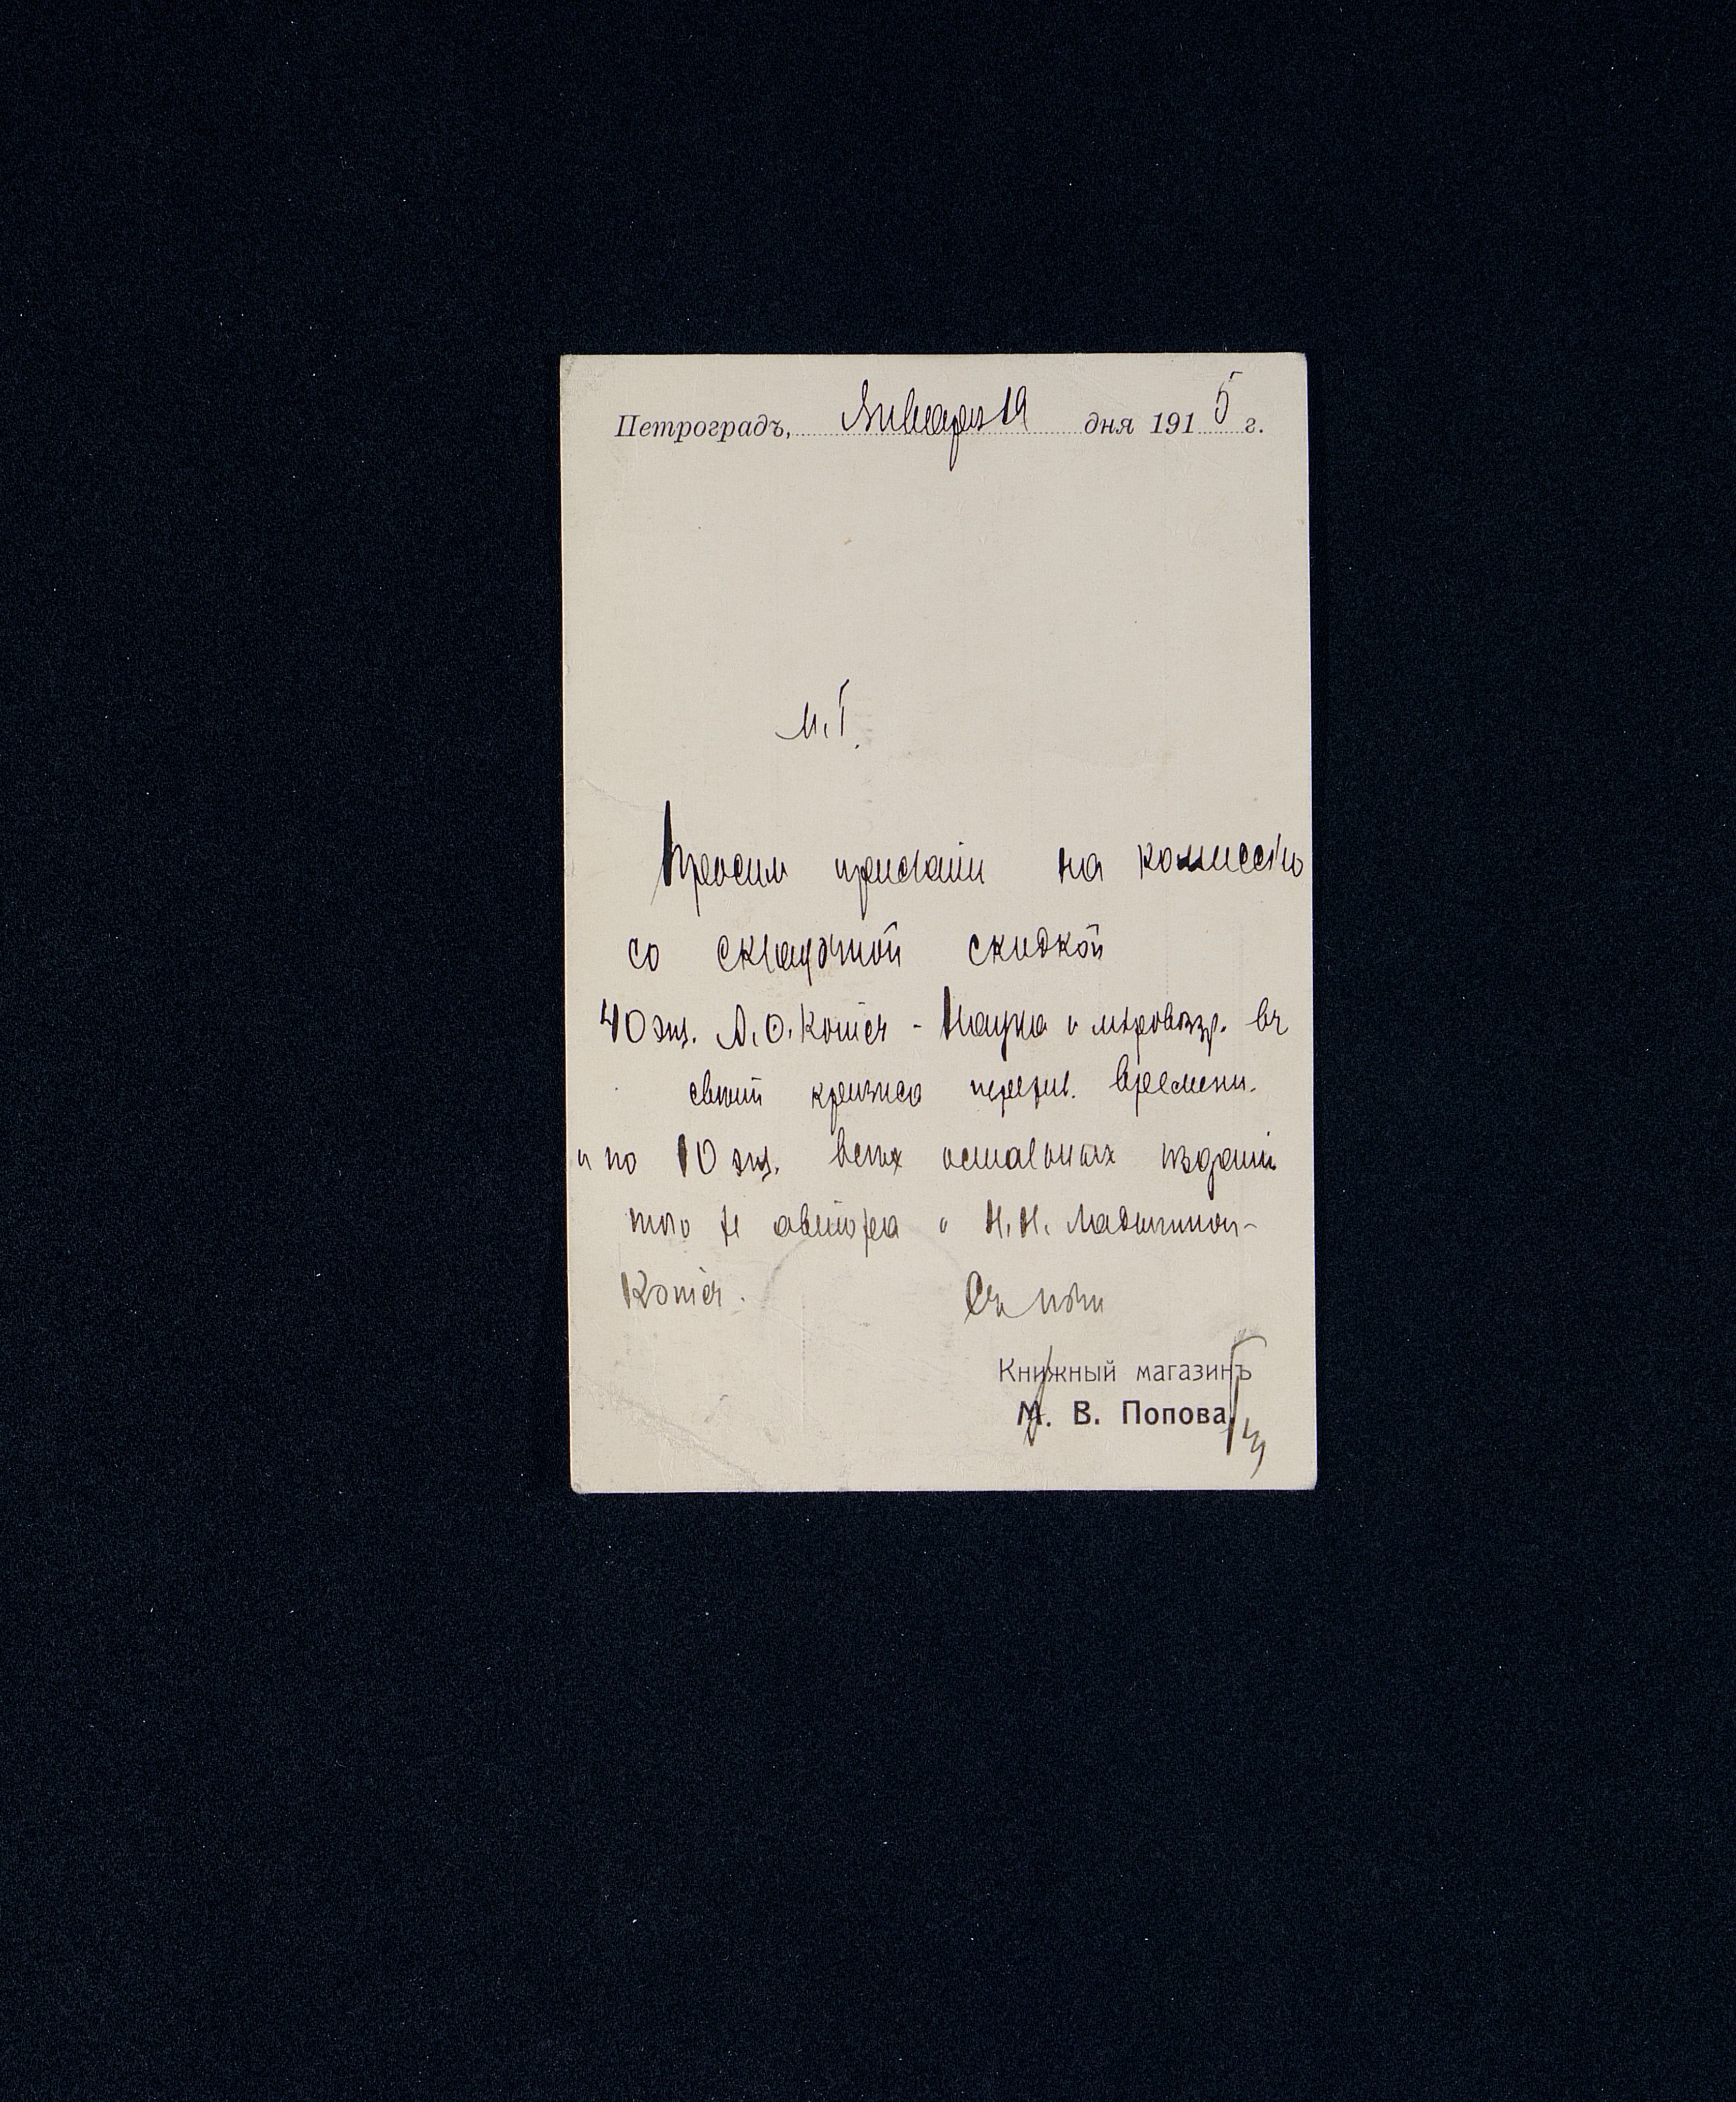 Петроградъ, Января 19 дня 1915 г.
М. Г.
Просим прислать на комиссію
со складочной скидкой
40 экз. А. О. Котієл - Наука и міровоззр. въ
свѣтѣ кризиса переж. времени.
и по 10 экз. всѣх остальных изданій
того же автора и Н. Н. Ладыгиной-
Котсъ.
Съ почт
Книжный магазинъ
М. В. Попова